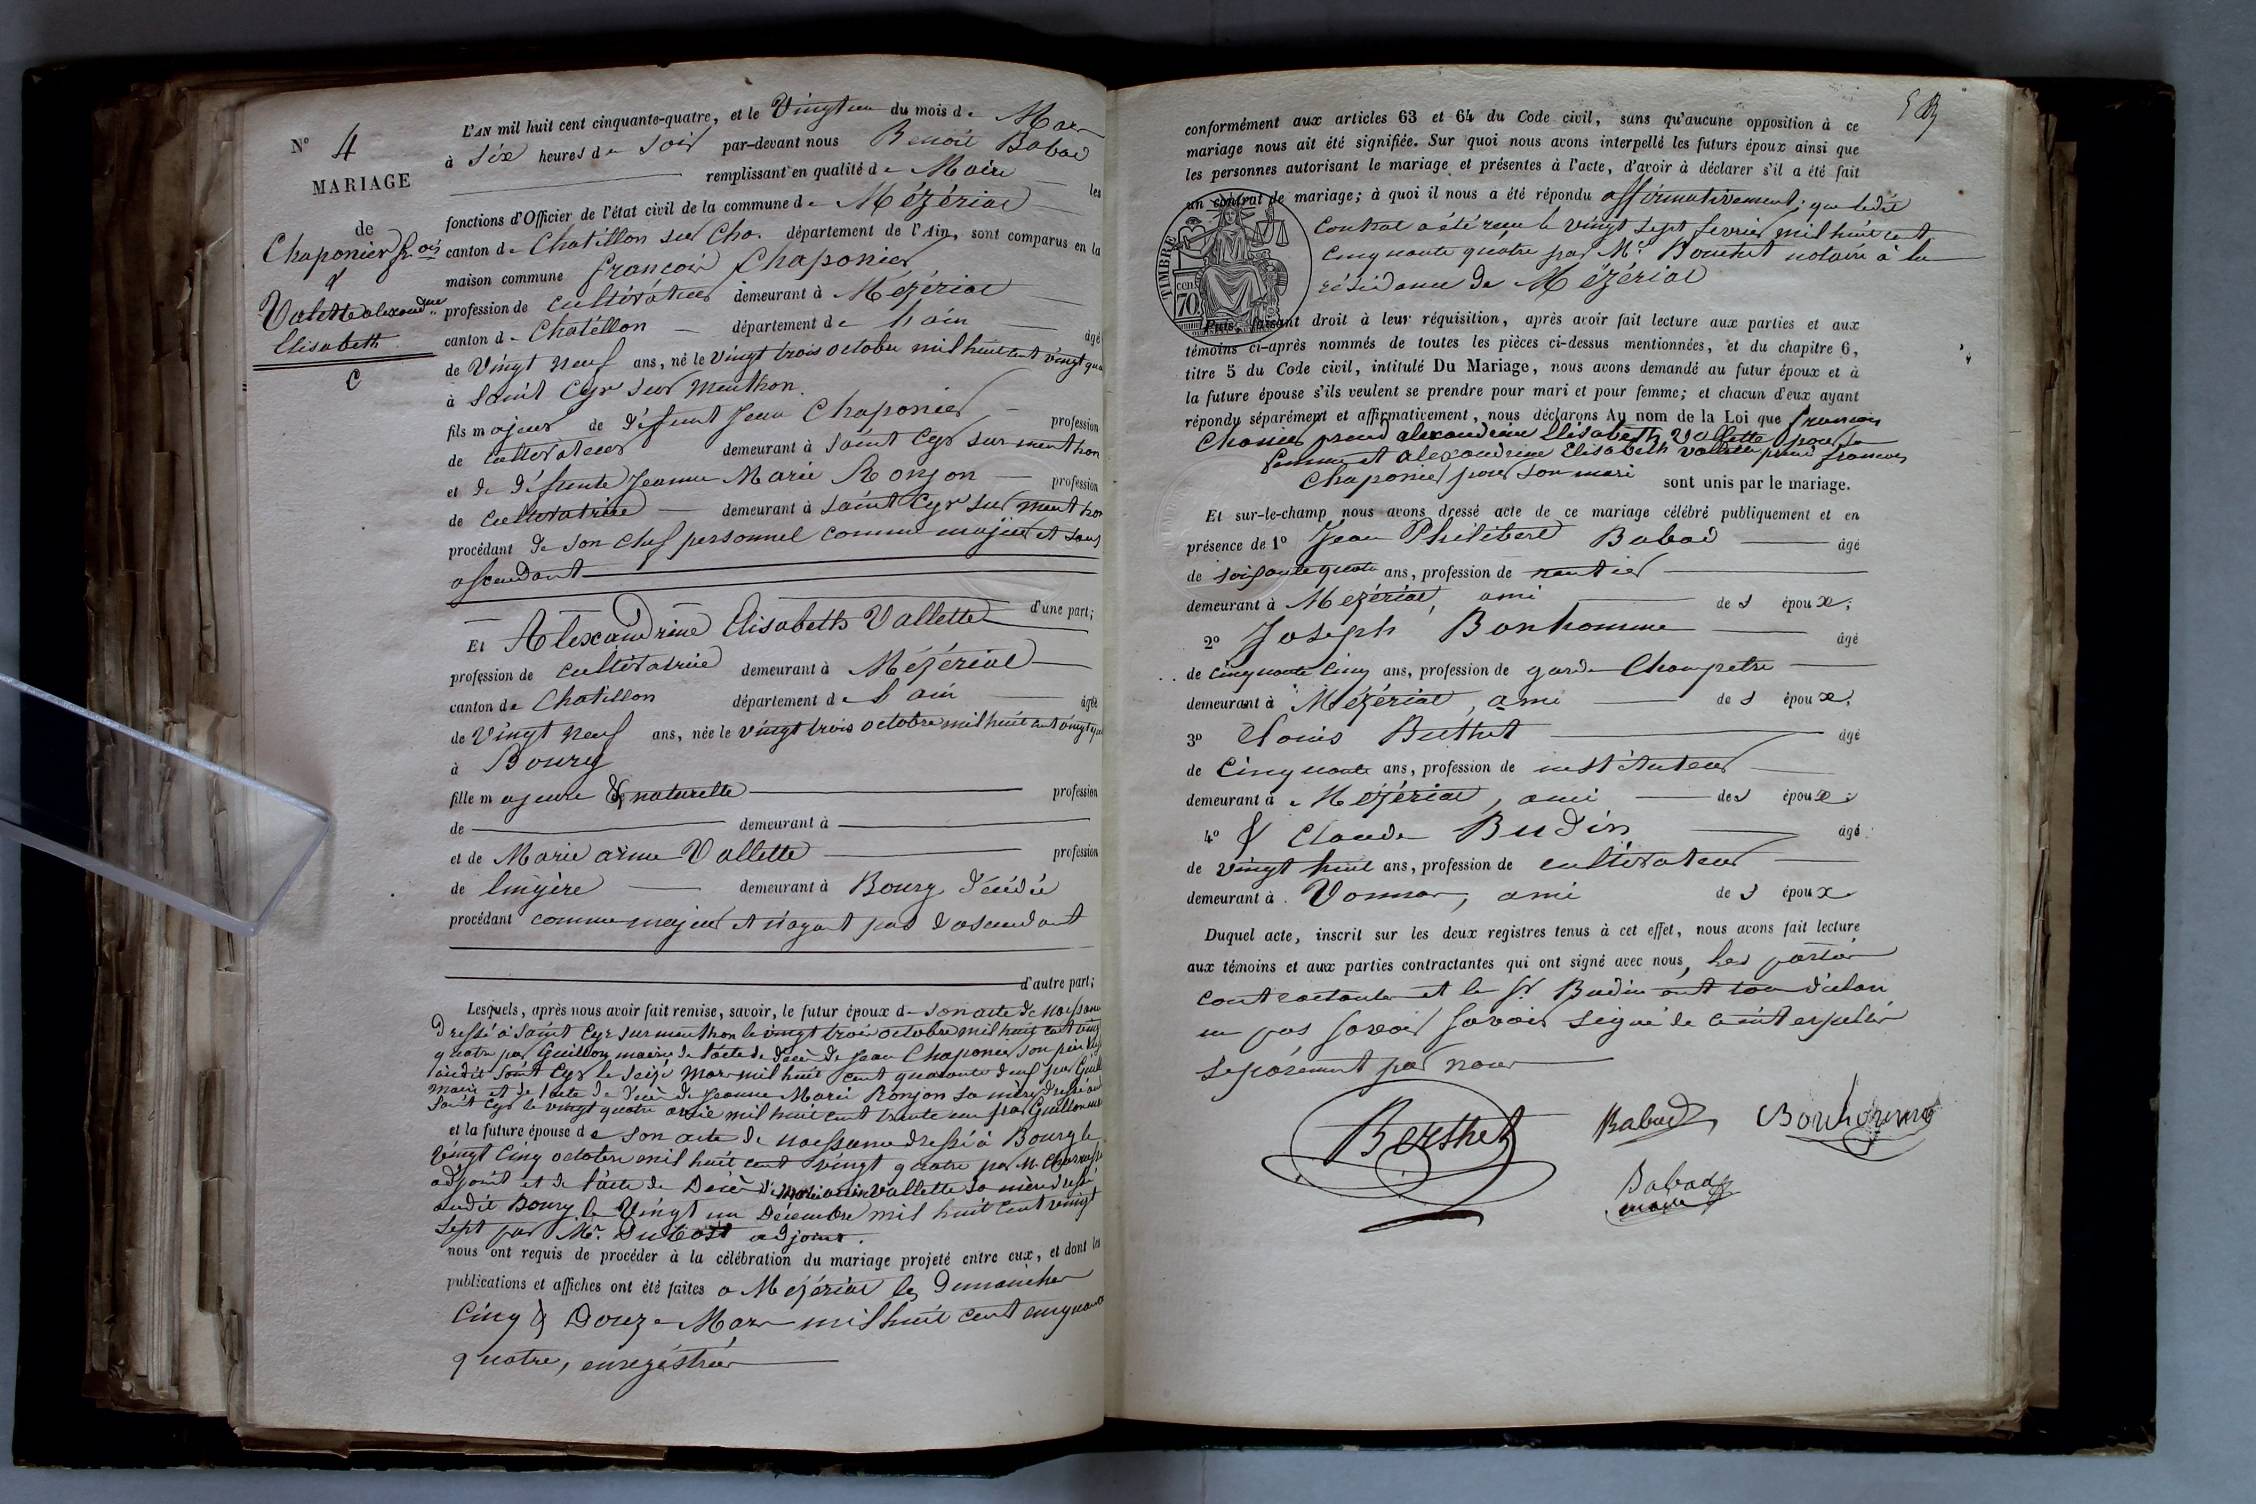 N° 4
MARIAGE
de
Chaponier Fçois
&
Valette alexandrine
Elisabeth
C
L'AN mil huit cent cinquante-quatre, et le Vingt un du mois de Mars
à Six heures du Soir par-devant nous Benoit Babad
remplissant en qualité de Maire les
fonctions d'Officier de l'état civil de la commune de Mézériat
canton de Chatillon sur Cha. département de l'Ain, sont comparus en la
maison commune françois Chaponier
profession de cultivateur demeurant à Mézériat
canton de Chatillon département de l'ain âgé
de Vingt neuf ans, né le vingt trois octobre mil huit cent vingt qua
à Saint Cyr sur menthon
fils majeur de défunt Jean Chaponier profession
de cultivateur demeurant à Saint Cyr sur menthon
et de défunte Jeanne Marie Ronjon profession
de cultivatrice demeurant à Saint Cyr sur menthon
procédant de son chef personnel comme majeur et sans
ascendant
d'une part;
Et Alexandrine Elisabeth Vallette
profession de cultivatrice demeurant à Mézériat
canton de Chatillon département de l'ain âgée
de Vingt neuf ans, née le vingt trois octobre mil huit cent vingt qu
à Bourg
fille majeure & naturelle profession
de demeurant à
et de Marie anne Vallette profession
de lingère demeurant à Bourg décédée
procédant comme majeur et n'ayant pas d'ascendant
d'autre part;
Lesquels, après nous avoir fait remise, savoir, le futur époux de son acte de Naissance
Dressé à Saint Cyr sur menthon le vingt trois octobre mil huit cent vingt
quatre par Guillon maire de l'acte de décè de Jean Chaponier son père
audit Saint Cyr le Seize Mars mil huit cent quarante deux par Guill
maire et de l'acte de décè de Jeanne Marie Ronjon sa mère dressé aud
Saint Cyr le vingt quatre avril mil huit cent trente un par Guillon
et la future épouse de son acte de naissance dressé à Bourg le
Vingt Cinq octobre mil huit cent vingt quatre par M.
adjoint et de l'acte de Decè de Marie anne Vallette sa mère dressé
audit Bourg le Vingt un Décembre mil huit cent vingt
sept par Mr. Dubost adjoint.
nous ont requis de procéder à la célébration du mariage projeté entre eux, et dont les
publications et affiches ont été faites a Mézériat les Dimanches
Cinq & Douze Mars mil huit cent cinquante
quatre, enregistrées
conformément aux articles 63 et 64 du Code civil, sans qu'aucune opposition à ce
mariage nous ait été signifiée. Sur quoi nous avons interpellé les futurs époux ainsi que
les personnes autorisant le mariage et présentes à l'acte, d'avoir à déclarer s'il a été fait
un contrat de mariage; à quoi il nous a été répondu affirmativement; que ledit
Contrat a été reçu le vingt sept fevrier mil huit cent
cinquante quatre par Me notaire à la
résidence de Mézériat
TIMBRE
cen
70
Puis, faisant droit à leur réquisition, après avoir fait lecture aux parties et aux
témoins ci-après nommés de toutes les pièces ci-dessus mentionnées, et du chapitre 6,
titre 5 du Code civil, intitulé Du Mariage, nous avons demandé au futur époux et à
la future épouse s'ils veulent se prendre pour mari et pour femme; et chacun d'eux ayant
répondu séparément et affirmativement, nous déclarons Au nom de la Loi que françois
prend alexandrine Elisabeth Vallette pour sa
femme et alexandrine Elisabeth Vallette prend françois
Chaponier pour son mari sont unis par le mariage.
Et sur-le-champ nous avons dressé acte de ce mariage célébré publiquement et en
présence de 1° Jean Philibert Babad âgé
de soixante quatre ans, profession de rentier
demeurant à Mézériat, ami des époux;
2° Joseph Bonhomme âgé
de cinquante cinq ans, profession de garde Champetre
demeurant à Mézériat, ami des époux;
3° Louis Berthet âgé
de Cinquante ans, profession de instituteur
demeurant à Mézériat, ami des époux;
4° & Claude Budin âgé
de vingt huit ans, profession de cultivateur
demeurant à Vonnas, ami des époux
Duquel acte, inscrit sur les deux registres tenus à cet effet, nous avons fait lecture
aux témoins et aux parties contractantes qui ont signé avec nous, les parties
contractantes et le Sr Budin ont tous déclaré
ne pas savoir savoir signé de ce interpellés
séparément par nous
Berthet Babad Bonhomme
Babad
maire